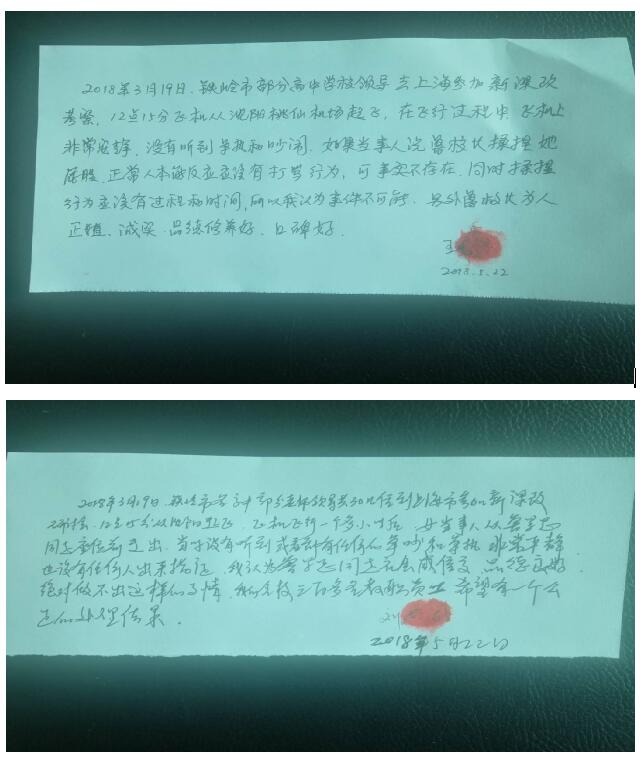 2018年3月19日、铁岭市部分高中学校领导去上海参加新课改
考察，12点15分飞机从沈阳桃仙机场起飞，在飞行过程中飞机上
非常安静，没有听到争执和吵闹，如果当事人说曾校长揉捏她
屁股，正常人本能反应应该有打骂行为，可事实不存在，同时揉捏
行为应该有过程和时间，所以我认为事件不可能，另外曾校长为人
正直、诚实、品德修养好、口碑好．
王
2018.5.22
2018年3月19日，铁岭市
到上海市参加新课改
12点15分从
起飞，飞机飞行一个多小时后，女当事人从
同志座位前走出，当时没有听到或看到有任何的争吵和争执，非常平静
也没有任何人出来指证，我认为
同志
品德
绝对做不出这样的事情，我们全校三百多名教职员工希望有一个公
正的处理结果．
刘
2018年5月22日